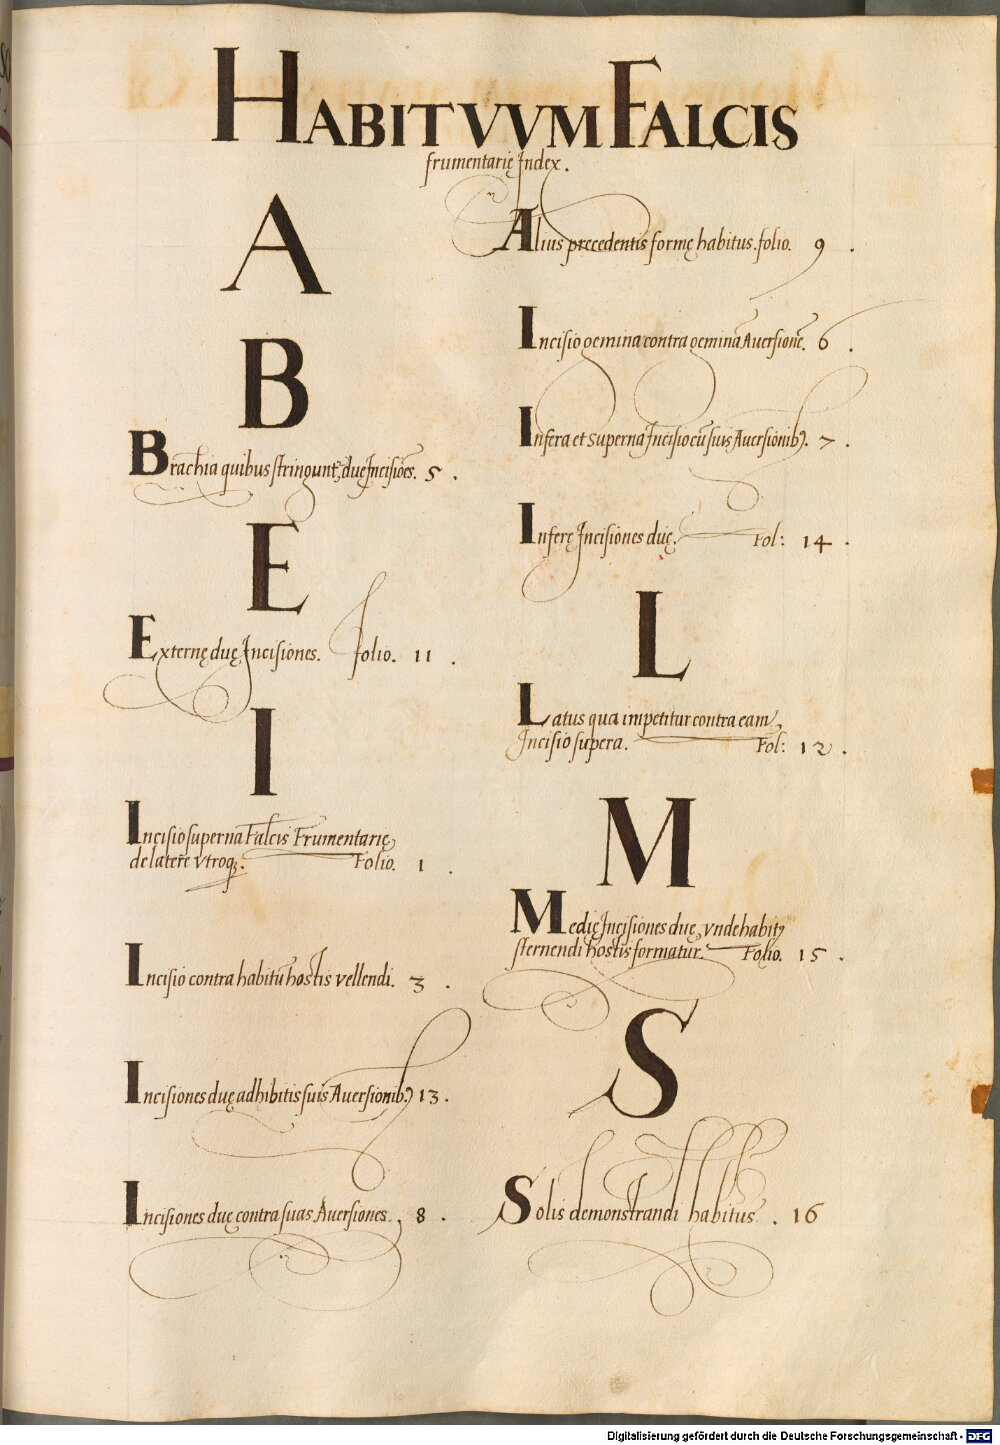 HABITVVM FALCIS
frumentarię Index.
A
B
Brachia quibus stringunt, duę Incisiões. 5 .
E
Externę duę Incisiones. folio. 11 .
I
Incisio superna Falcis Frumentarię
de latere vtroq̃. Folio. 1 .
Incisio contra habitũ hostis vellendi. 3 .
Incisiones duę adhibitis suis Auersionibꝰ 13 .
Incisiones duę contra suas Auersiones. 8 .
Alius precedentis formę habitus. folio. 9 .
Incisio gemina contra geminã Auersionẽ. 6 .
Infera et superna Incisio cũ suis Auersionibꝰ. 7 .
Inferę Incisiones duę. Fol: 14 .
L
Latus qua impetitur contra eam,
Incisio supera. Fol: 12 .
M
Medię Incisiones duę, vnde habitꝰ
sternendi hostis formatur. Folio. 15 .
S
Solis demonstrandi habitus . 16
Digitalisierung gefördert durch die Deutsche Forschungsgemeinschaft - DFG